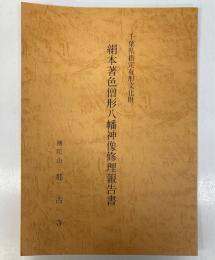 千葉県指定有形文化財
絹本著色僧形八幡神像修理報告書
補陀山 那古寺